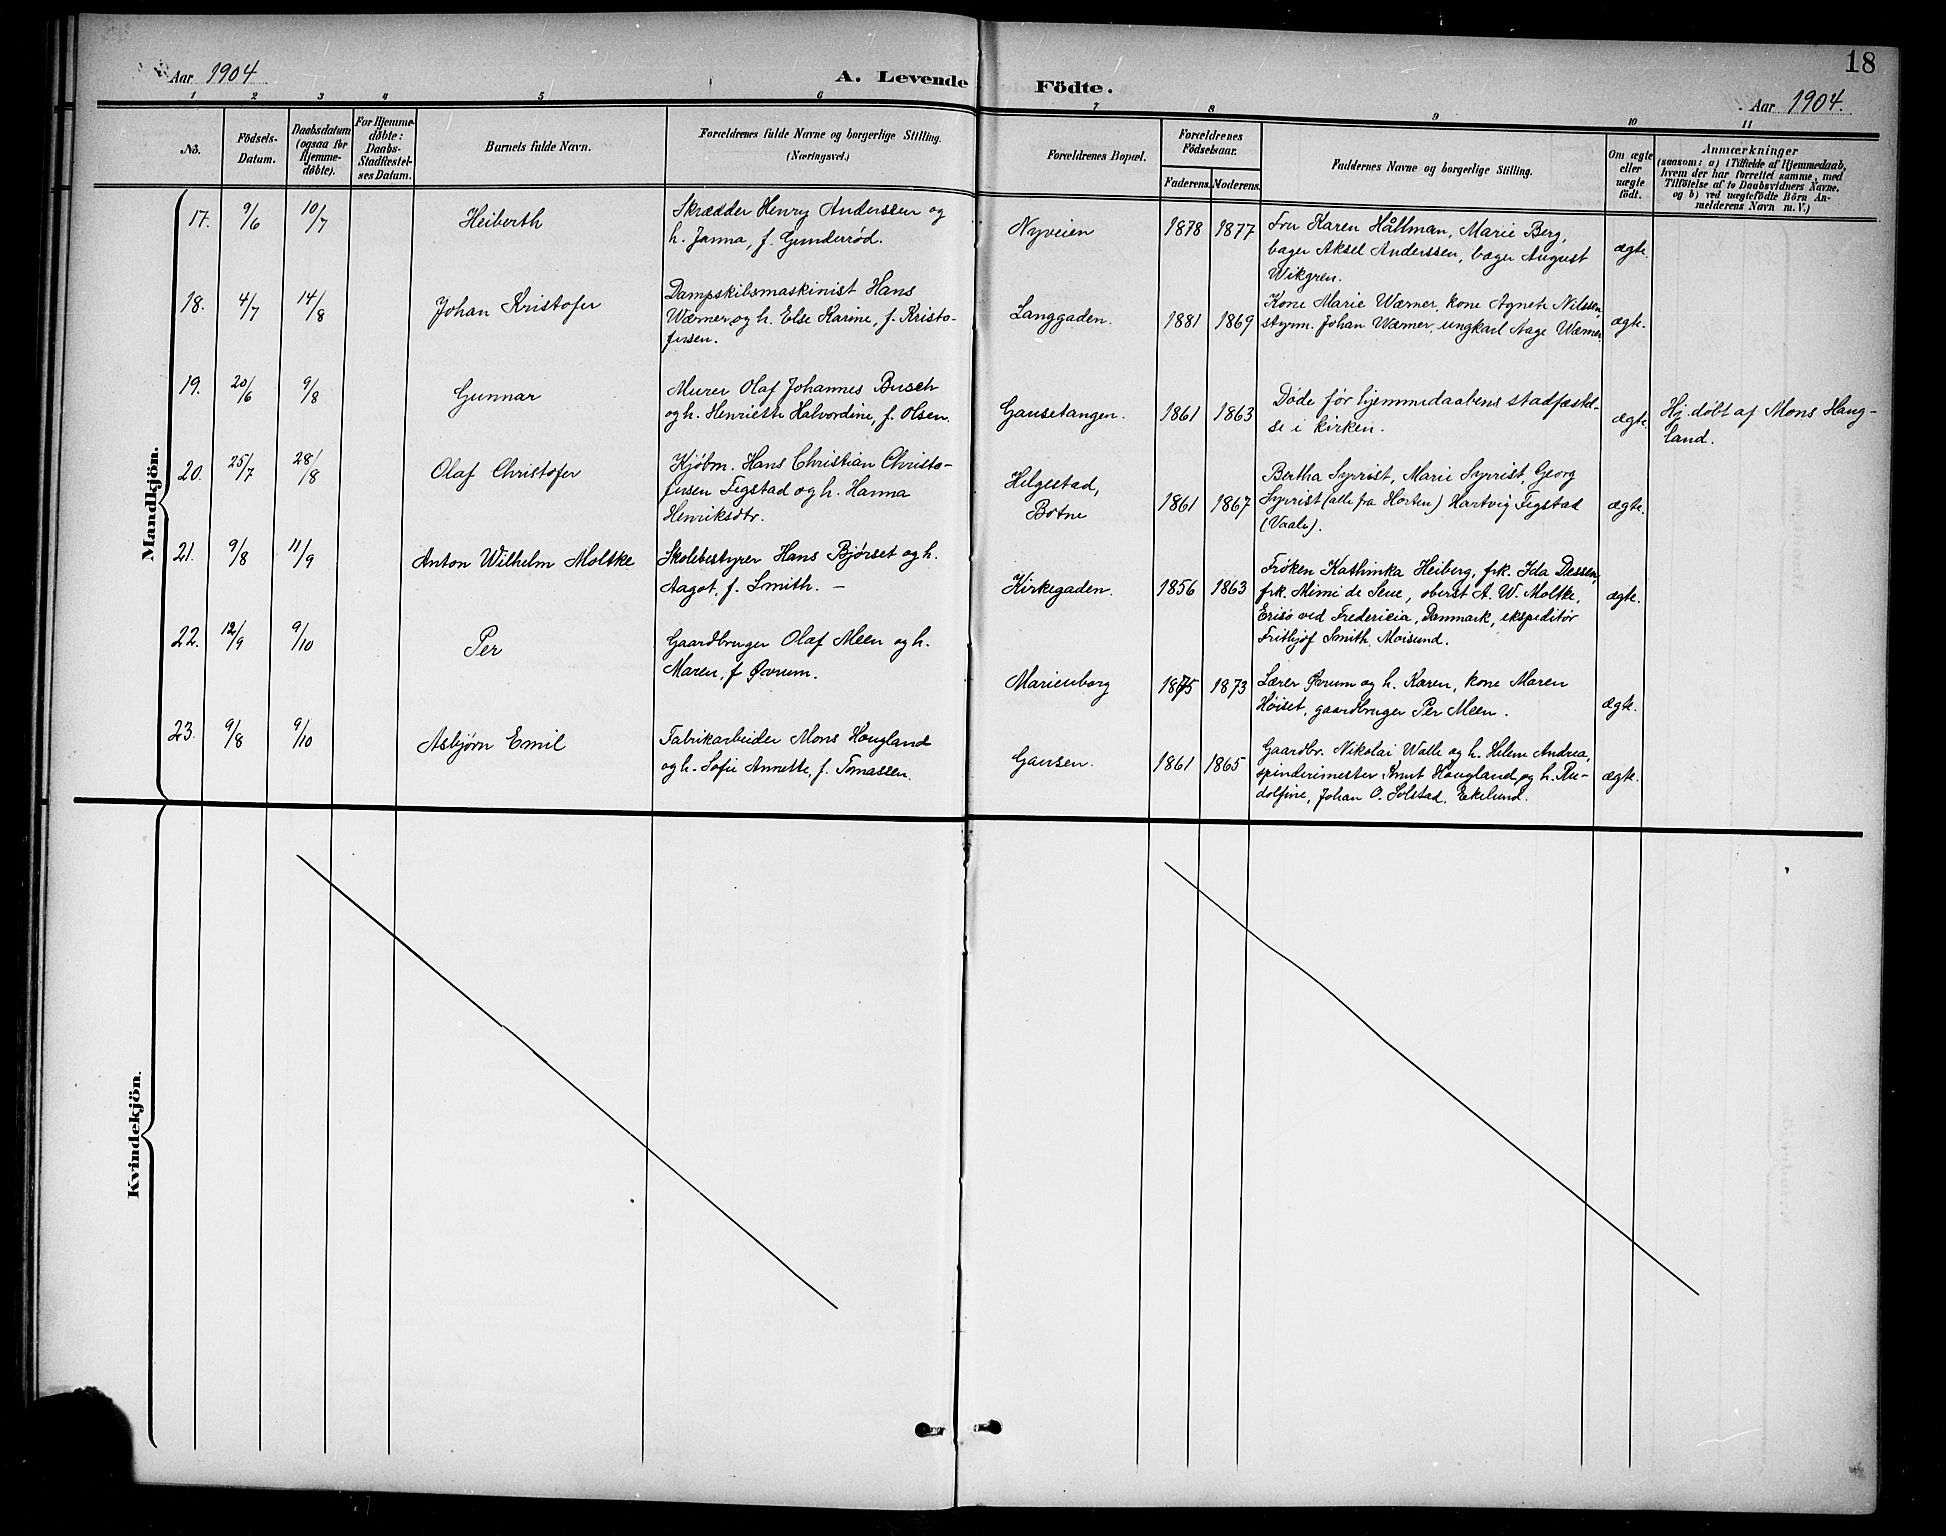 18
Aar 1904
A. Levende Födte.
Aar 1904.
1 2 3 4 5 6 7 8 9 10 11
No.
Födsels-
Datum.
Daabsdatum
(ogsaa for
Hjemme-
døbte).
For Hjemme-
døbte:
Daabs-
Stadfæstel-
ses Datum.
Barnets fulde Navn.
Forældrenes fulde Navne og borgerlige Stilling.
(Næringsvei.)
Forældrenes Bopæl.
Forældrenes
Födselsaar.
Faderens. Moderens.
Faddernes Navne og borgerlige Stilling.
Om ægte
eller
uægte
født.
Anmærkninger
(saasom: a) i Tilfælde af Hjemmedaab,
hvem der har forrettet samme, med
Tilføielse af to Daabsvidners Navne,
og b) ved uægtefödte Börn An-
melderens Navn m. V.)
Mandkjön.
17. 9/6 10/7 Heiberth
Skrædder Henry Anderssen og
h. Janna, f. Gunderrød.
Nyveien 1878 1877
Fru Karen Hållman, Marie Berg,
bager Aksel Anderssen, bager August
Wikgren.
ægte.
18. 4/7 14/8 Johan Kristofer
Dampskibsmaskinist Hans
Wærner og h. Else Karine, f. Kristo-
fersen.
Langgaden. 1881 1869
Kone Marie Wærner, kone Agnete Nilssen,
styrm. Johan Wærner, ungkarl Aage Wærner.
ægte.
19. 20/6 9/8 Gunnar
Murer Olaf Johannes Busch
og h. Henriette Halvordine, f. Olsen.
Gausetangen. 1861 1863
Døde før hjemmedaabens stadfæstel-
se i kirken.
ægte.
Hj. døbt af Mons Haug-
land.
20. 25/7 28/8 Olaf Christofer
Kjøbm. Hans Christian Christo-
fersen Fegstad og h. Hanna
Henriksdtr.
Helgestad,
Botne
1861 1867
Bertha Syrrist, Marie Syrrist, Georg
Syrrist (alle fra Horten) Hartvig Fegstad
(Vaale).
ægte.
21. 9/8 11/9 Anton Wilhelm Moltke
Skolebestyrer Hans Bjørset og h.
Aagot, f. Smith. —
Kirkegaden. 1856 1863
Frøken Kathinka Heiberg, frk. Ida Dessen,
frk. Mimi de Seue, oberst A. W. Moltke,
Erisø ved Fredericia, Danmark, ekspeditør
Frithjof Smith, Moisund.
ægte.
22. 12/9 9/10 Per
Gaardbruger Olaf Meen og h.
Maren, f Øvrum.
Marienborg 1875 1873
Lærer Øvrum og h. Karen, kone Maren
Høiset, gaardbruger Per Meen.
ægte.
23. 9/8 9/10 Asbjørn Emil
Fabrikarbeider Mons Hougland
og h. Sofie Annette, f. Tomassen.
Gausen. 1861 1865
Gaardbr. Nikolai Walle og h. Helene Andrea,
spinderimester Knut Hougland og h. Ru-
dolfine, Johan O. Solstad, Ekelund.
ægte.
Kvindekjön.